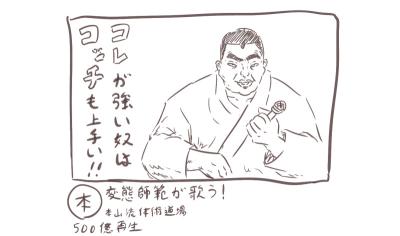 コレが強い奴は
コッチも上手い!!
本
変態師範が歌う!
本山流体術道場
500億再生